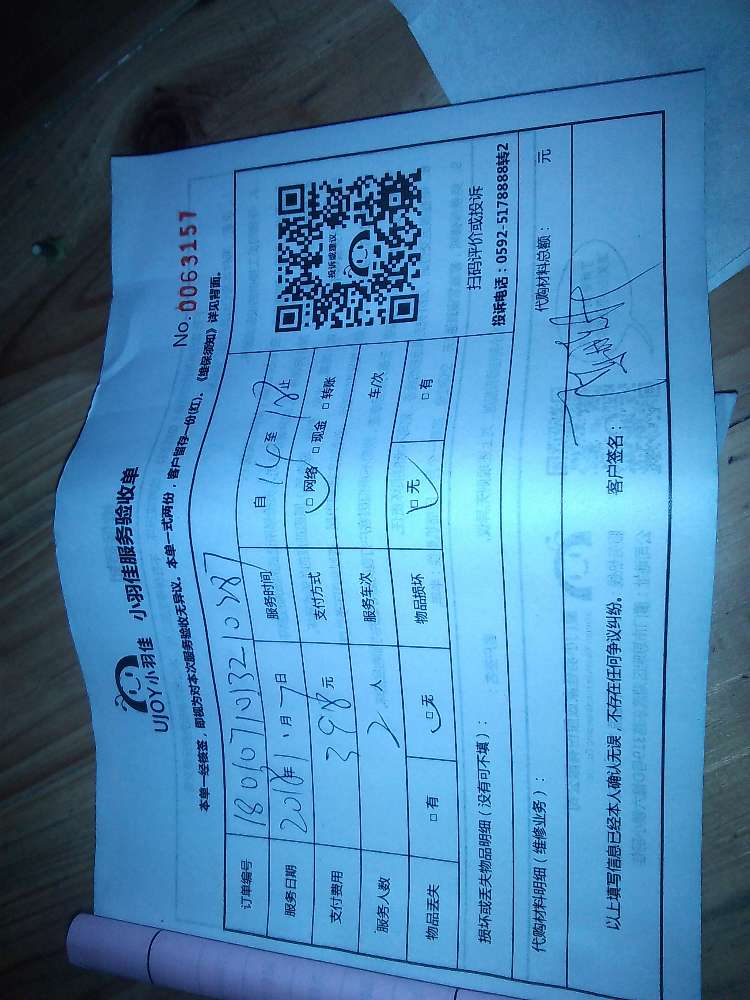 UJOY小羽佳 小羽佳服务验收单
No.0063157
本单一经核签，即视为对本次服务验收无异议。本单一式两份，客户留存一份(红)，《维保须知》详见背面。
订单编号 1801071013210387
服务时间 自14至18止
服务日期 2018年1月7日
支付方式 网络 现金 转账
支付费用 398元
服务车次 车/次
服务人数 2人
物品损坏 无 有
物品丢失 有 无
投诉或建议
扫码评价或投诉
投诉电话：0592-5178888转2
损坏或丢失物品明细（没有可不填）：
代购材料明细（维修业务）：
代购材料总额： 元
以上填写信息已经本人确认无误，不存在任何争议纠纷。
客户签名：